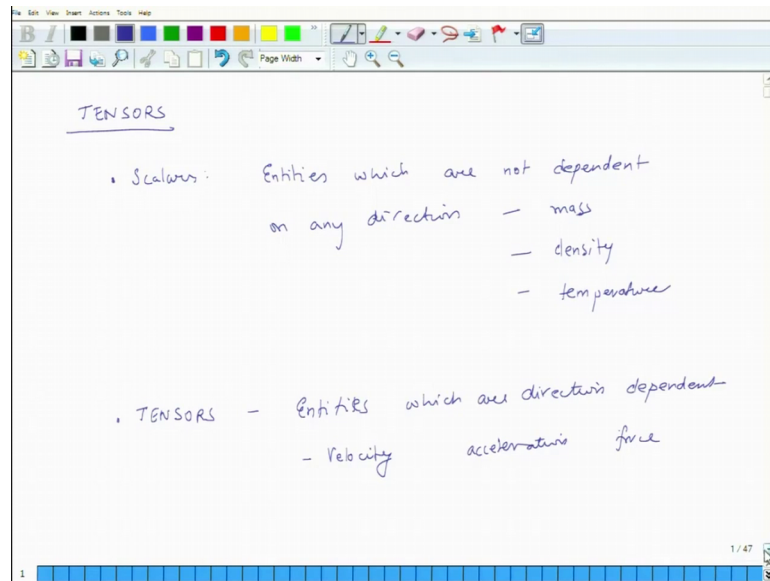 File Edit View Insert Actions Tools Help
B I
Page Width
TENSORS
• Scalars: Entities which are not dependent
on any direction — mass
— density
— temperature
• TENSORS — Entities which are direction dependent
— Velocity acceleration force
1 / 47
1